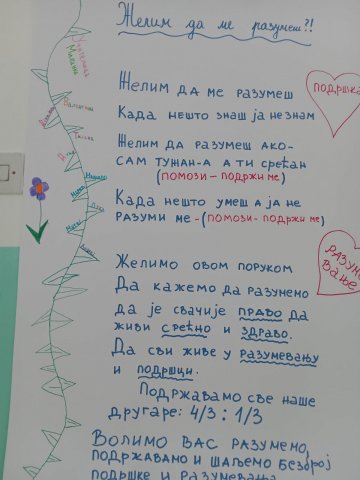 Желим да ме разумеш?!
Желим да ме разумеш
Када нешто знаш ја не знам
Желим да разумеш ако-
сам тужан-а а ти срећан
(помози - подржи ме)
Када нешто умеш а ја не
разуми ме - (помози - подржи ме)
Желимо овом поруком
Да кажемо да разумемо
да је свачије право да
живи срећно и здраво.
Да сви живе у разумевању
и подршци.
Подржавамо све наше
другаре: 4/3 : 1/3
Волимо вас разумемо,
подржавамо и шаљемо безброј
подршке и разумевања
подршка
разуме
вање
Учитељица
Милана